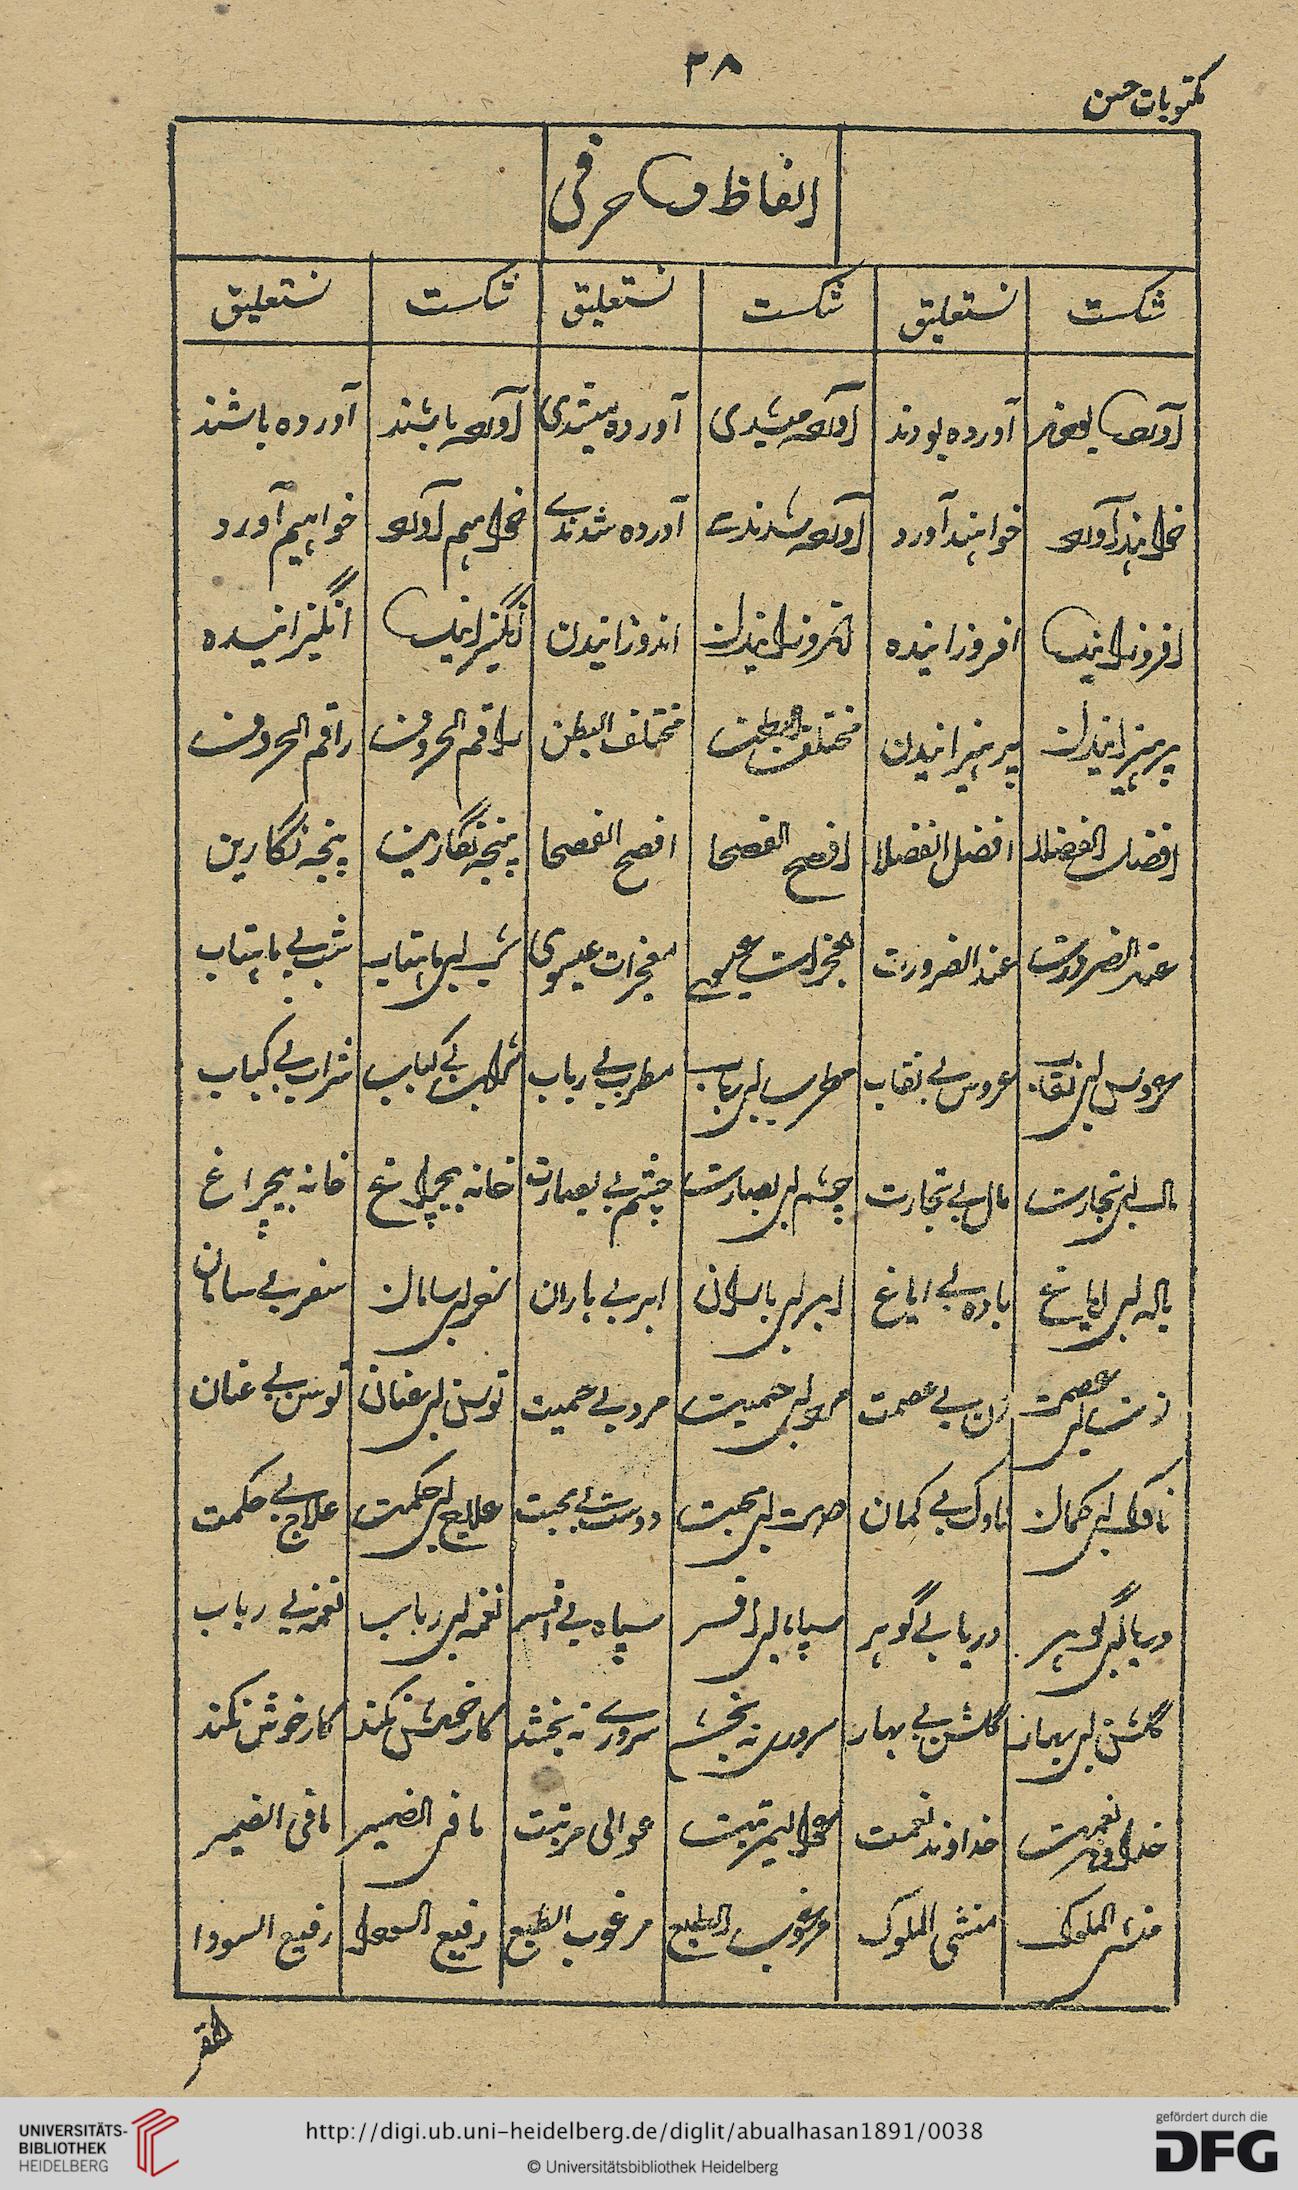 ۳۸
مکتوبات حسن
الفاظ ده حرفی
شکست نستعلیق شکست نستعلیق شکست نستعلیق
آورده بودند آورده بودند آورده میشدی آورده میشدی آورده باشند آورده باشند
خواہند آورد خواہند آورد آورده شدندے آورده شدندے خواہیم آورد خواہیم آورد
افروزانیده افروزانیده اندوزانیدن اندوزانیدن انگیزانیده انگیزانیده
پرہیزانیدن پرہیزانیدن مختلف البطن مختلف البطن راقم الحروف راقم الحروف
افضل الفضلا افضل الفضلا افصح الفصحا افصح الفصحا پنجہ نگارین پنجہ نگارین
عند الضرورت عند الضرورت معجزات عیسوی معجزات عیسوی شب بے ماہتاب شب بے ماہتاب
عروس بے نقاب عروس بے نقاب مطرب بے رباب مطرب بے رباب شراب بے کباب شراب بے کباب
مال بے تجارت مال بے تجارت چشم بے بصارت چشم بے بصارت خانہ بیچراغ خانہ بیچراغ
باده بے ایاغ باده بے ایاغ ابر بے باران ابر بے باران سفر بے سامان سفر بے سامان
زن بے عصمت زن بے عصمت مرد بے حمیت مرد بے حمیت توسن بے عنان توسن بے عنان
ناوک بے کمان ناوک بے کمان دوست بے محبت دوست بے محبت علاج بے حکمت علاج بے حکمت
دریا بے گوہر دریا بے گوہر سپاه بے افسر سپاه بے افسر نغمہ بے رباب نغمہ بے رباب
گلشن بے بہار گلشن بے بہار سرورے نہ بخشد سرورے نہ بخشد کار خوش نکند کار خوش نکند
خداوند نعمت خداوند نعمت عوالی مرتبت عوالی مرتبت مافی الضمیر مافی الضمیر
منشی الملوک منشی الملوک مرغوب الطبع مرغوب الطبع رفیع السودا رفیع السودا
UNIVERSITÄTS-
BIBLIOTHEK
HEIDELBERG
http://digi.ub.uni-heidelberg.de/diglit/abualhasan1891/0038
© Universitätsbibliothek Heidelberg
gefördert durch die
DFG